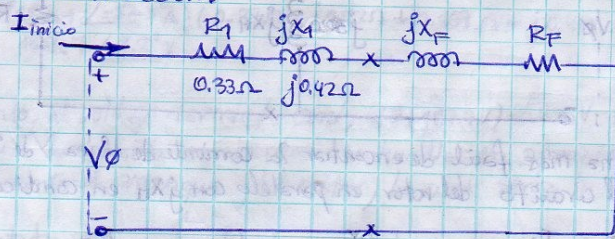 I inicio R1 jX1 jXF RF
0.33Ω j0.42Ω
+
VØ
-